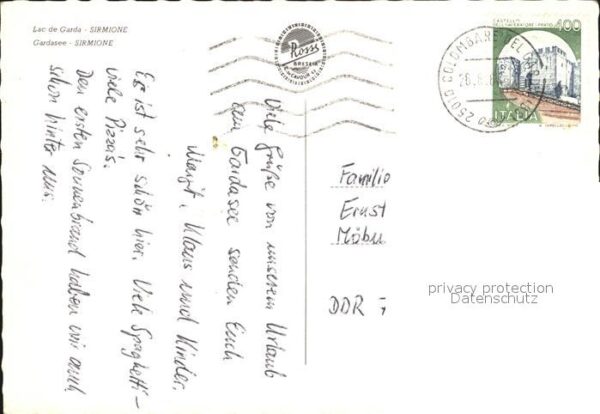 Lac de Garda - SIRMIONE
Gardasee - SIRMIONE
Rossi
BRESCIA
CASTELLO
DELL'IMPERATORE - PRATO
400
ITALIA
25010 COLOMBARE
Viele Grüße von unserem Urlaub
am Gardasee senden Euch
Margit, Klaus und Kinder.
Es ist sehr schön hier. Viele Spaghetti-
viele Pizza's.
Den ersten Sonnenbrand haben wir auch
schon hinter uns.
Familie
Ernst
Möbu
DDR -
privacy protection
Datenschutz